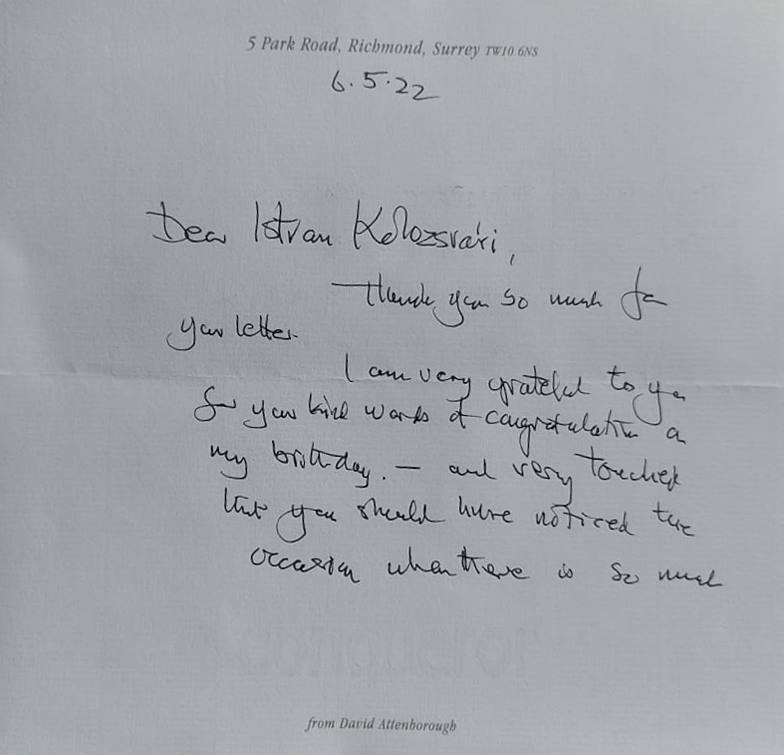 5 Park Road, Richmond, Surrey TW10 6NS
6.5.22
Dear Istvan Kolozsvári,
Thank you so much for
your letter.
I am very grateful to you
for your kind words of congratulation on
my birthday. — and very touched
that you should have noticed the
occasion when there is so much
from David Attenborough